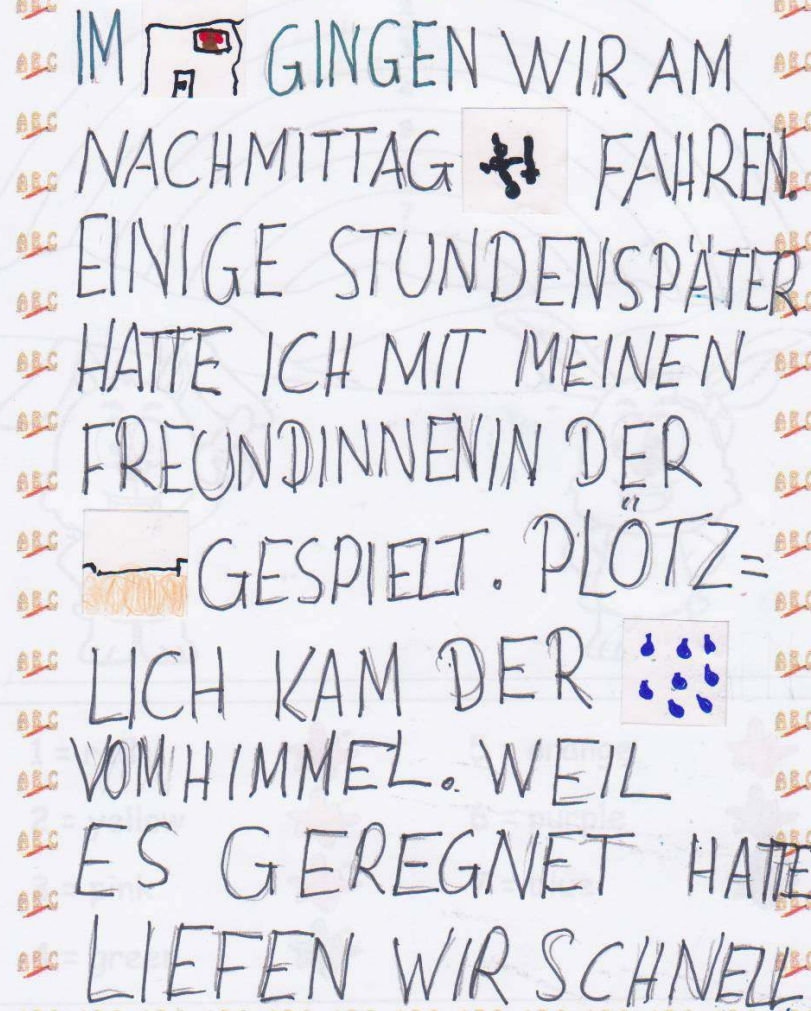 IM GINGEN WIR AM
NACHMITTAG FAHREN.
EINIGE STUNDENSPÄTER
HATTE ICH MIT MEINEN
FREUNDINNENIN DER
GESPIELT. PLÖTZ=
LICH KAM DER
VOMHIMMEL. WEIL
ES GEREGNET HATTE
LIEFEN WIR SCHNELL